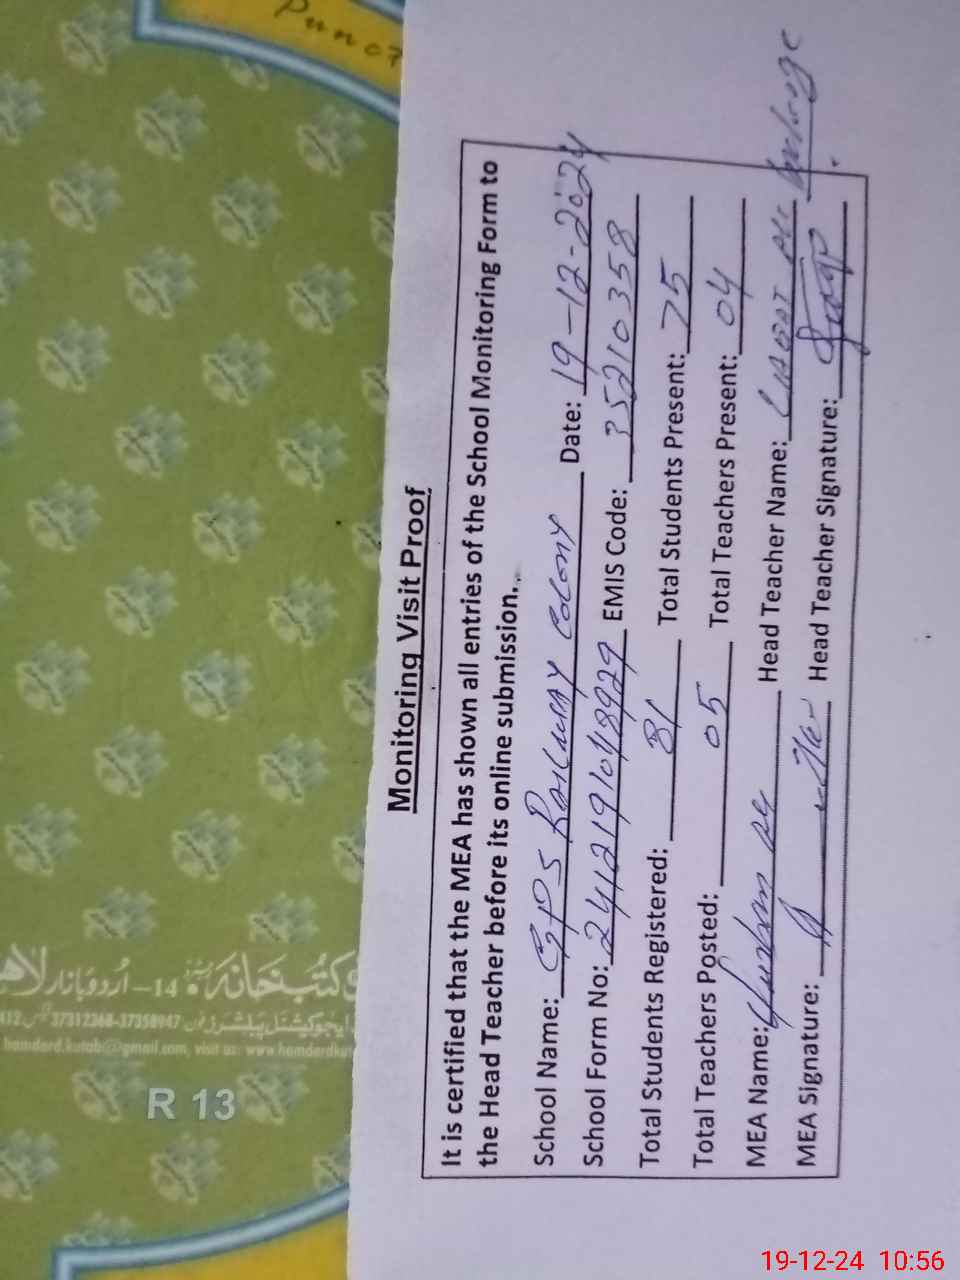 Monitoring Visit Proof
It is certified that the MEA has shown all entries of the School Monitoring Form to
the Head Teacher before its online submission.
School Name: GPS Railway Colony Date: 19-12-2024
School Form No: 2412191048929 EMIS Code: 35210358
Total Students Registered: 81 Total Students Present: 75
Total Teachers Posted: 05 Total Teachers Present: 04
MEA Name: Head Teacher Name: LIAQAT ALI
MEA Signature: Head Teacher Signature:
کتب خانہ اردو بازار لاہ
14
37312368-37358947
hamdard.kutab@gmail.com, visit us: www.hamdardkut
R 13
19-12-24 10:56